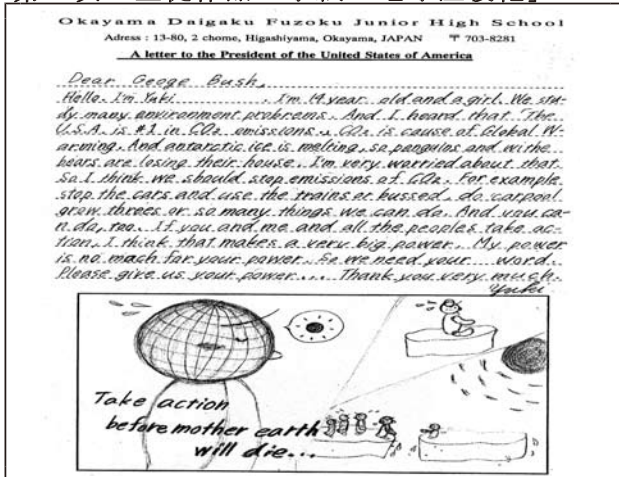 Okayama Daigaku Fuzoku Junior High School
Adress : 13-80, 2 chome, Higashiyama, Okayama, JAPAN 〒 703-8281
A letter to the President of the United States of America
Dear Geoge Bush,
Hello. I'm Yuki . I'm 14 year old and a girl. We stu-
dy many environment probrems. And I heard that "The
U.S.A. is #1 in CO2 emissions., CO2 is cause of Global W-
arming. And antarctic ice is melting, so panguins and withe
bears are losing their house. I'm very worried about that.
So I think we should stop emissions of CO2. For example
stop the cars and use the trains or bussed, do carpool
grow threes or so many things we can do. And you ca-
n do, too. If you and me and all the peoples take ac-
tion, I think that makes a very big power. My power
is no mach for your power. So we need your word.
Please give us your power... Thank you very much.
Yuki
Take action
before mother earth
will die...